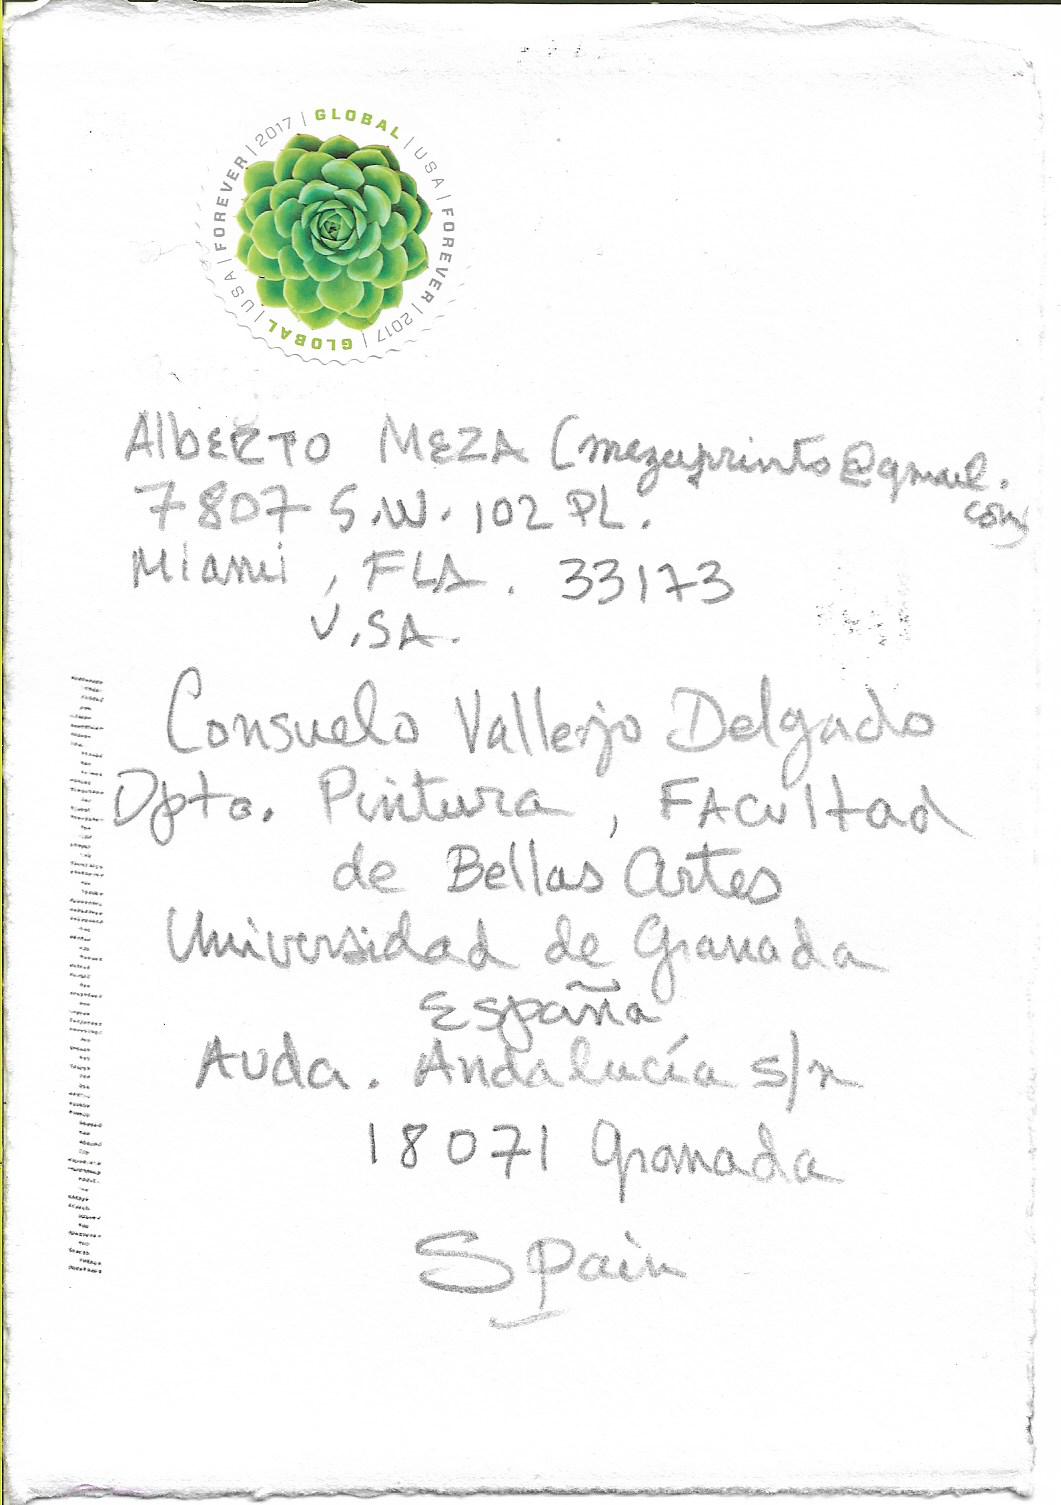 GLOBAL | USA | FOREVER | 2017 | GLOBAL | USA | FOREVER | 2017 |
AlbERTO MEZA (mezaprints@gmail.
com)
7807 S.W. 102 PL.
Miami, FLA. 33173
U.SA.
Consuelo Vallejo Delgado
Dpto. Pintura, FAcultad
de Bellas Artes
Universidad de Granada
España
Avda. Andalucía s/n
18071 Granada
Spain